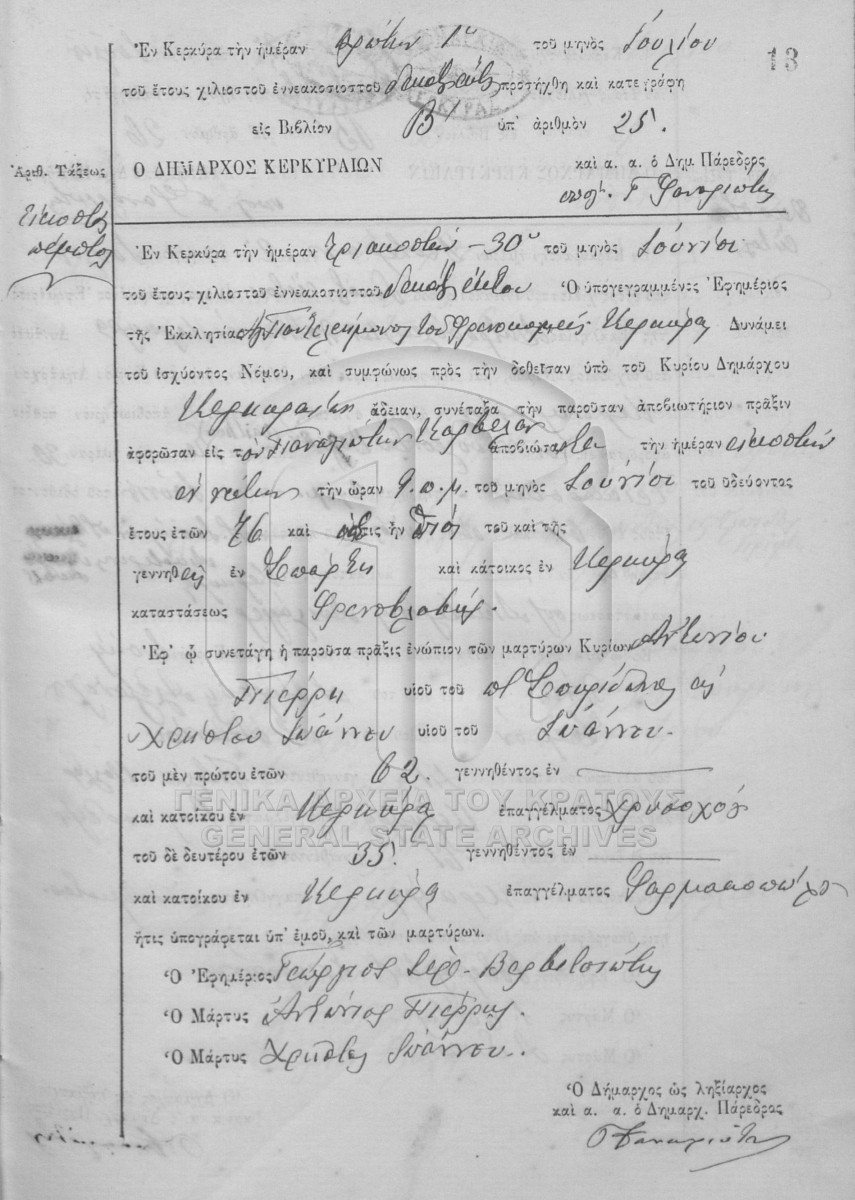 Ἐν Κερκύρᾳ τὴν ἡμέραν πρώτην 1ῃ τοῦ μηνὸς Ἰουλίου
13
τοῦ ἔτους χιλιοστοῦ ἐννεακοσιοστοῦ προσήχθη καὶ κατεγράφη
εἰς Βιβλίον Β' ὑπ' ἀριθμὸν 25.
Ἀριθ. Τάξεως
Ο ΔΗΜΑΡΧΟΣ ΚΕΡΚΥΡΑΙΩΝ
καὶ α. α. ὁ Δημ. Πάρεδρος
Γ Φαναριώτης
Εἰκοστὸς
πέμπτος
Ἐν Κερκύρᾳ τὴν ἡμέραν τριακοστὴν - 30ῃ τοῦ μηνὸς Ἰουνίου
τοῦ ἔτους χιλιοστοῦ ἐννεακοσιοστοῦ δεκάτου ἕκτου Ὁ ὑπογεγραμμένος Ἐφημέριος
τῆς Ἐκκλησίας Παντελεήμονος τοῦ Φρενοκομείου Κερκύρας Δυνάμει
τοῦ ἰσχύοντος Νόμου, καὶ συμφώνως πρὸς τὴν δοθεῖσαν ὑπὸ τοῦ Κυρίου Δημάρχου
Κερκυραίων ἄδειαν, συνέταξα τὴν παροῦσαν ἀποβιωτήριον πρᾶξιν
ἀφορῶσαν εἰς τὸν Παναγιώτην ἀποβιώσαντα τὴν ἡμέραν εἰκοστὴν
ἐννάτην τὴν ὥραν 9 π.μ. τοῦ μηνὸς Ἰουνίου τοῦ ὁδεύοντος
ἔτους ἐτῶν 76 καὶ ὅστις ἦν υἱὸς τοῦ καὶ τῆς
γεννηθεὶς ἐν Σπάρτῃ καὶ κάτοικος ἐν Κερκύρᾳ
καταστάσεως Φρενοβλαβής.
Ἐφ' ᾧ συνετάγη ἡ παροῦσα πρᾶξις ἐνώπιον τῶν μαρτύρων Κυρίων Ἀντωνίου
Πιέρρη υἱοῦ τοῦ π Σπυρίδωνος καὶ
Χρήστου Ἰωάννου υἱοῦ τοῦ Ἰωάννου.
τοῦ μὲν πρώτου ἐτῶν 62. γεννηθέντος ἐν
ΓΕΝΙΚΑ ΑΡΧΕΙΑ ΤΟΥ ΚΡΑΤΟΥΣ
καὶ κατοίκου ἐν Κερκύρᾳ ἐπαγγέλματος Χρυσοχόου
GENERAL STATE ARCHIVES
τοῦ δὲ δευτέρου ἐτῶν 35. γεννηθέντος ἐν
καὶ κατοίκου ἐν Κερκύρᾳ ἐπαγγέλματος Φαρμακοπώλου
ἥτις ὑπογράφεται ὑπ' ἐμοῦ, καὶ τῶν μαρτύρων.
Ὁ Ἐφημέριος Γεώργιος Ἱερ. Βερβιτσιώτης
Ὁ Μάρτυς Ἀντώνιος Πιέρρης.
Ὁ Μάρτυς Χρῆστος Ἰωάννου.
Ὁ Δήμαρχος ὡς ληξίαρχος
καὶ α. α. ὁ Δημαρχ. Πάρεδρος
Γ Φαναριώτης